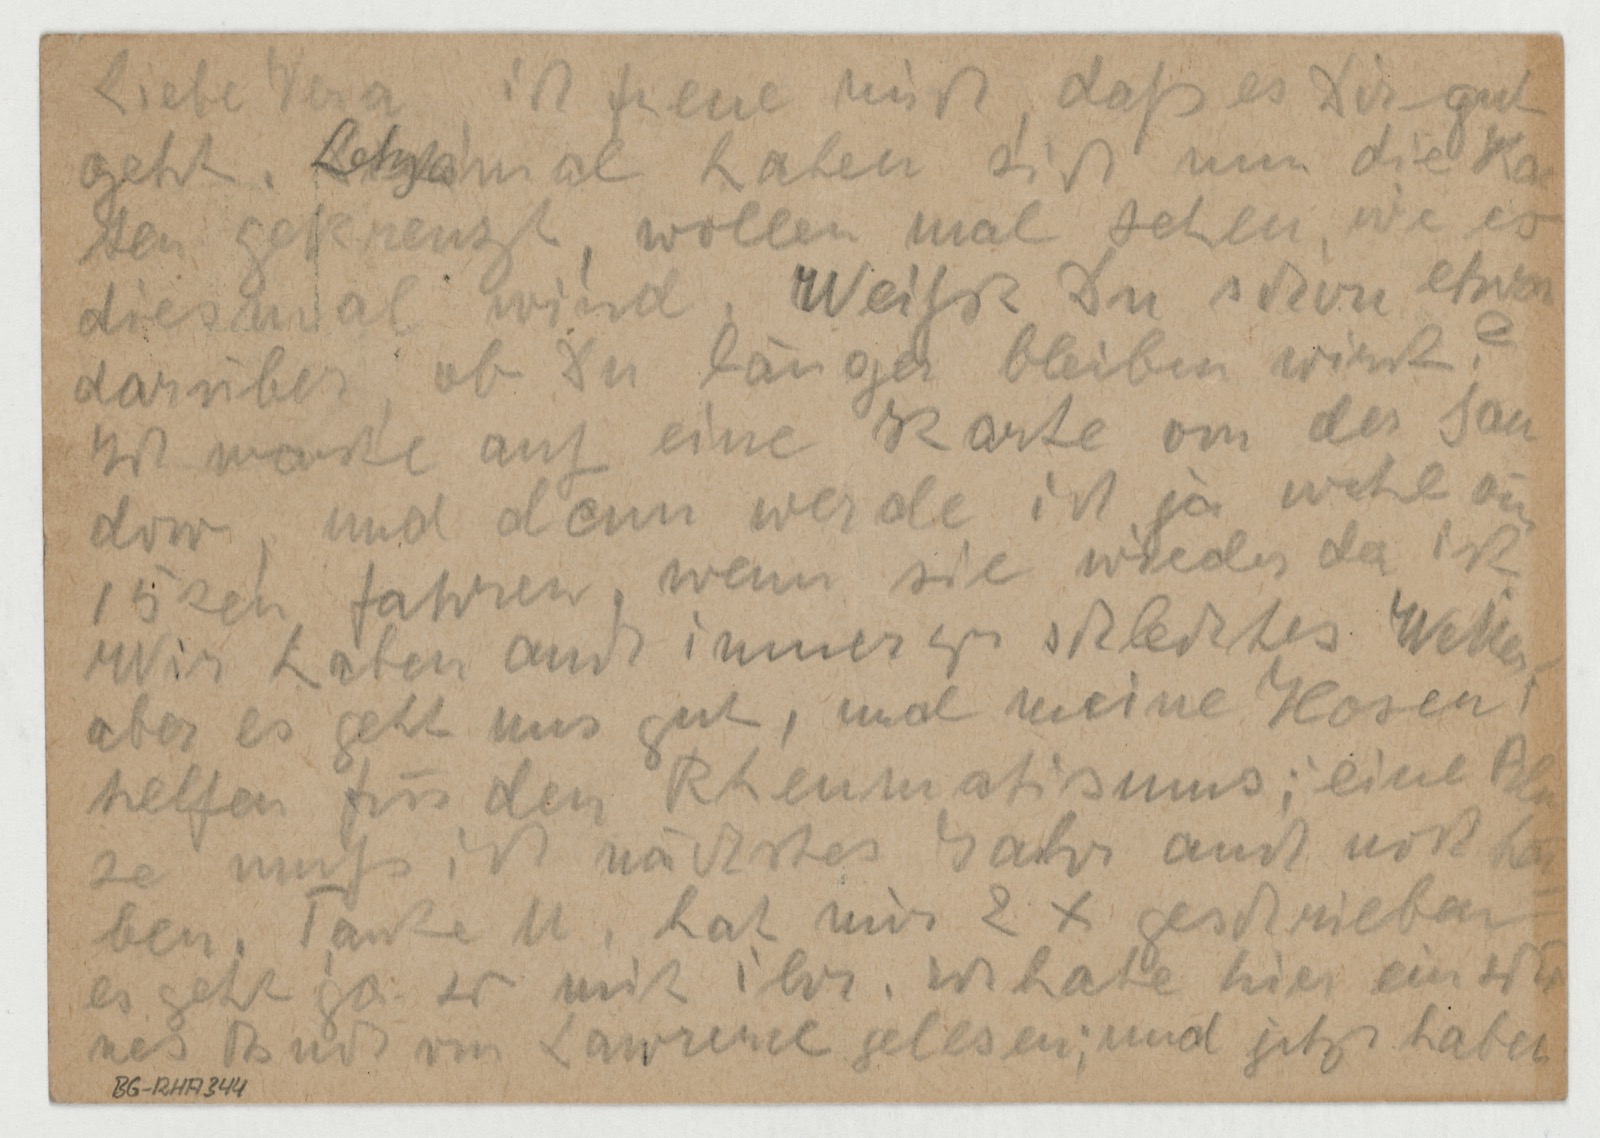 Liebe Vera, ich freue mich, daß es Dir gut
geht. Letztesmal haben sich nun die Kar
ten gekreuzt, wollen mal sehen, wie es
diesmal wird. Weißt Du schon etwas
darüber, ob Du länger bleiben wirst?
Ich warte auf eine Karte von der San
dow, und dann werde ich ja wohl am
15ten fahren, wenn sie wieder da ist.
Wir haben auch immer so schlechtes Wetter,
aber es geht uns gut, und meine Hosen
helfen für den Rheumatismus; eine Blu
se muß ich nächstes Jahr auch noch ha=
ben. Tante U. hat mir 2 x geschrieben
es geht ja so mit ihr. Ich habe hier ein schö
nes Buch von Lawrence gelesen; und jetzt haben
BG-RHA344